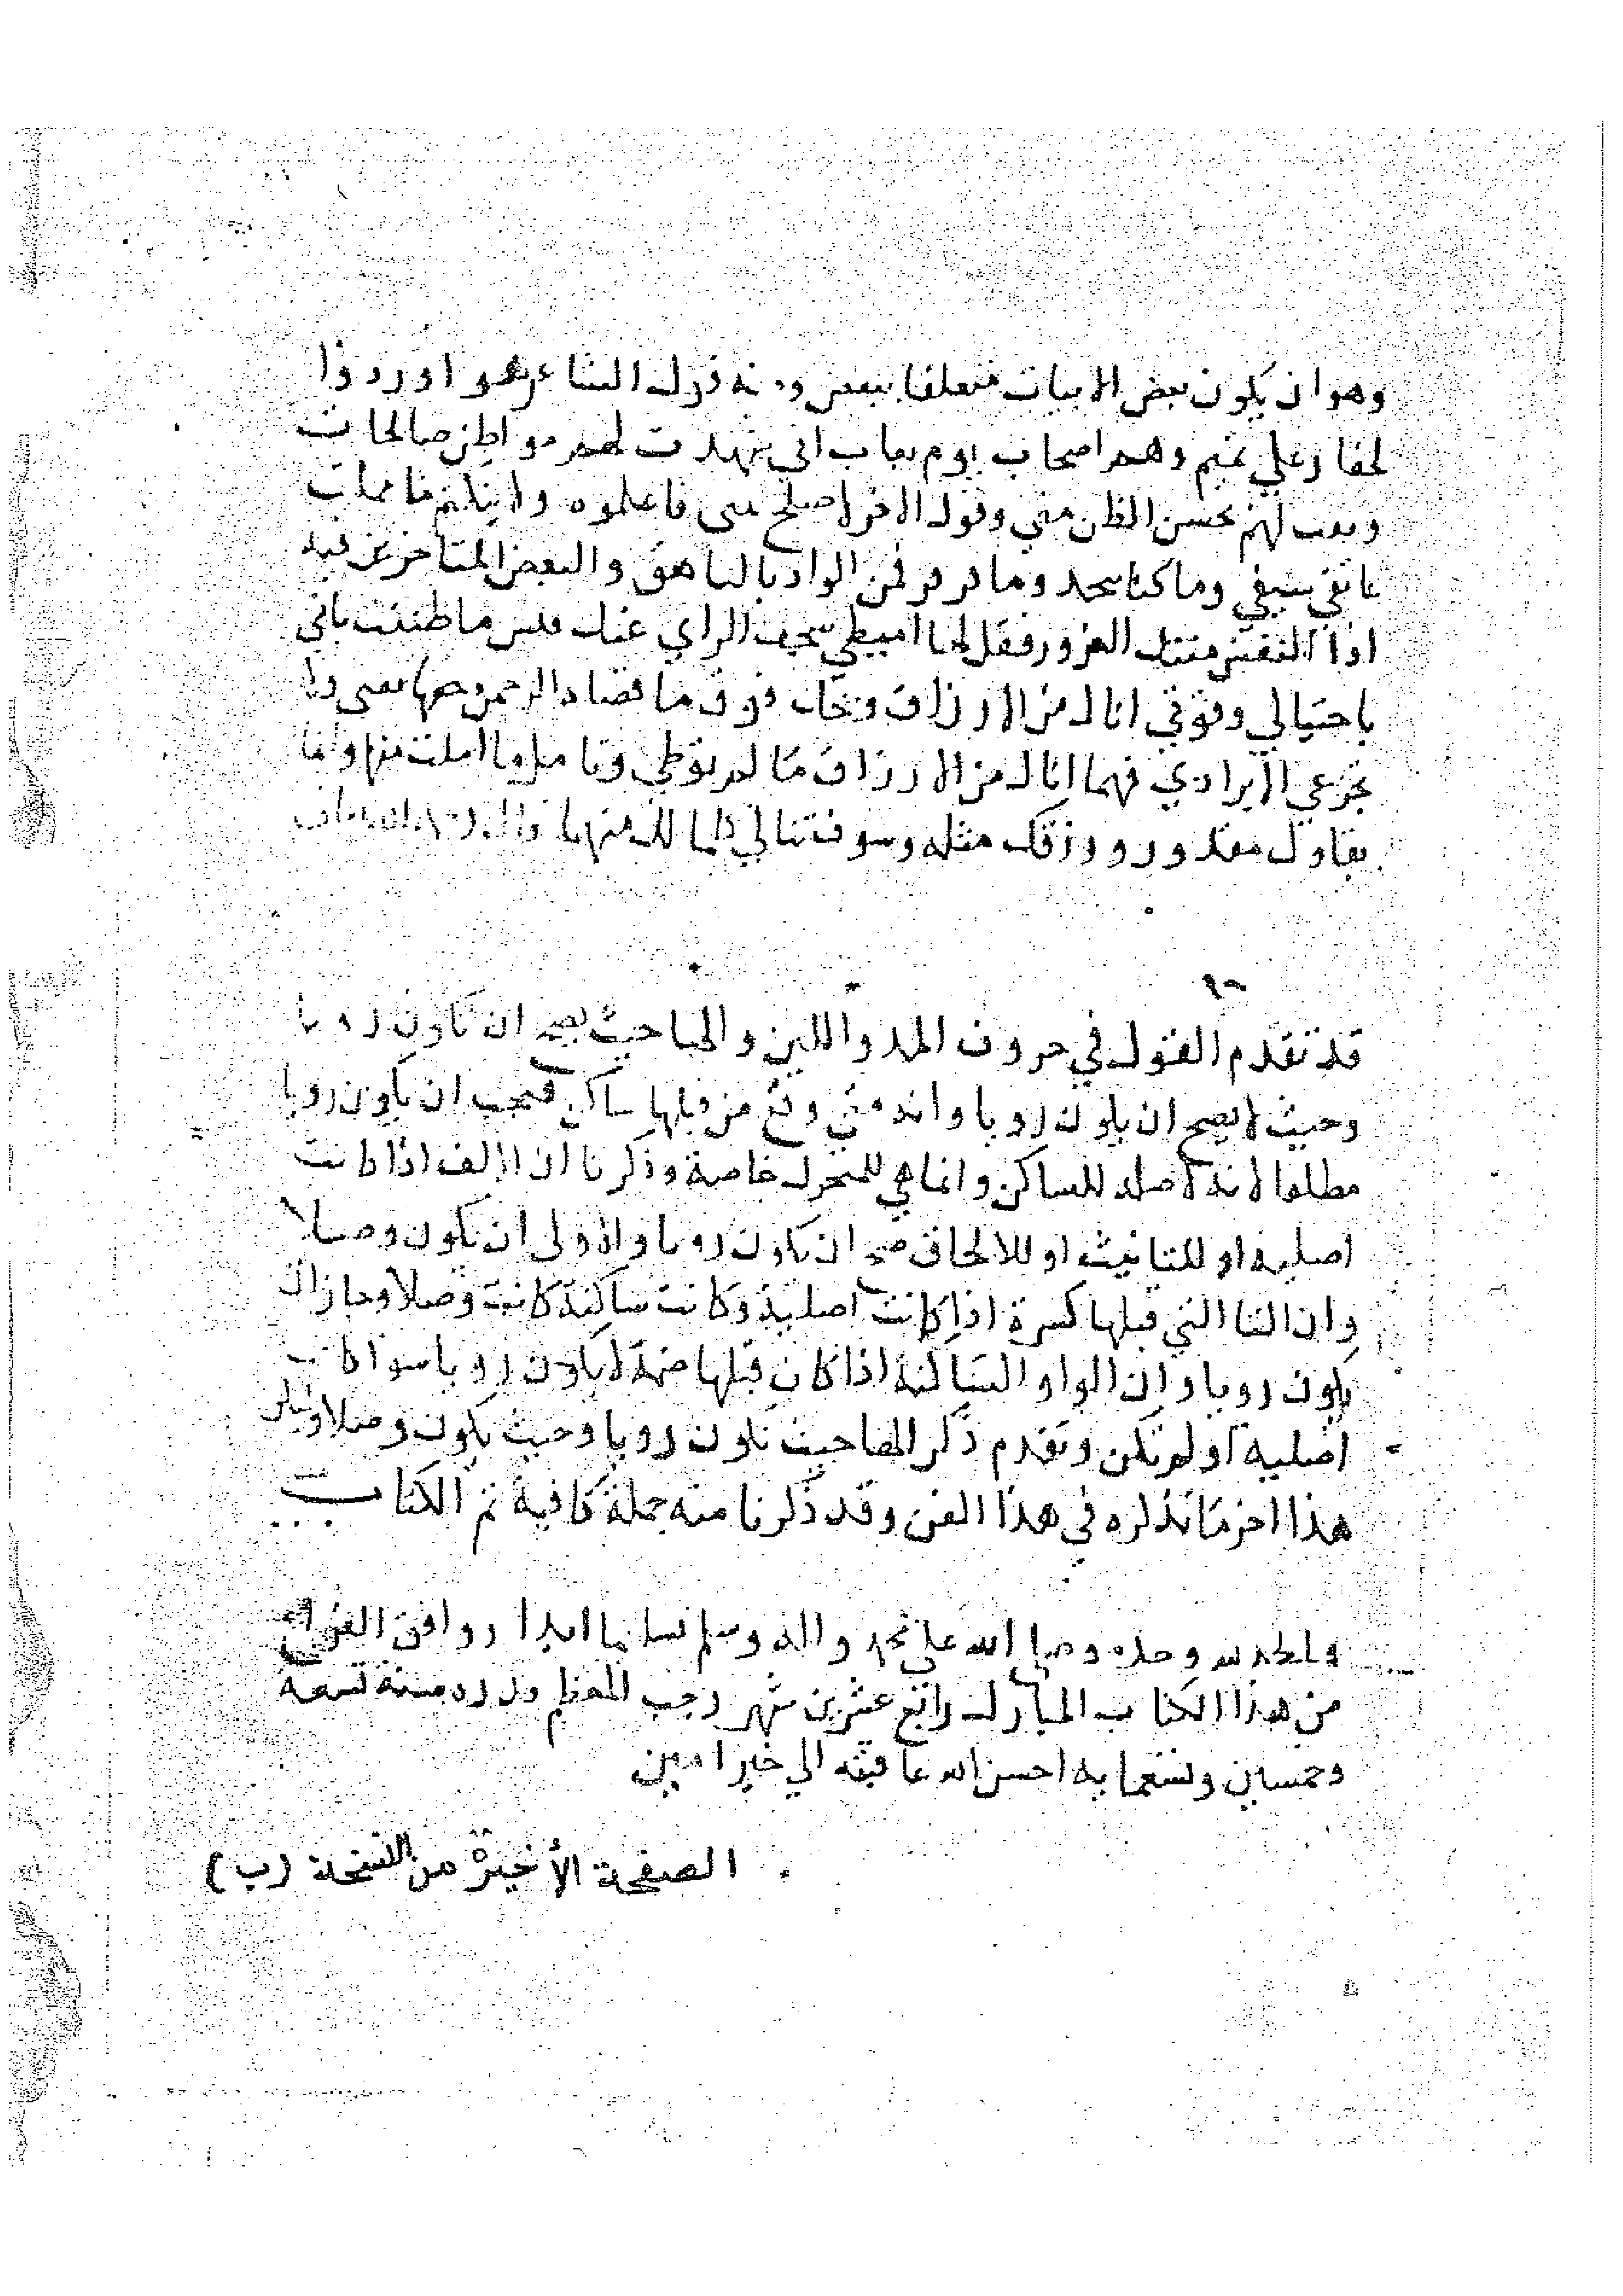 وهو ان يكون بعض الابيات متعلقا ببعض ومنه قول الشاعر هموا وردوا
الجفار علي تميم وهم اصحاب يوم عكاب اني شهدت لهم مواطن صالحات
لهم بحسن الظن مني وقول الاخر لا صلح بيني فاعلموه ولا بينكم ما حملت
عاتقي سيفي وما كنا بنجد وما قرقر قمر الواد بالشاهق والبعض المتاخرين فيه
اذا النفس منتك الغرور فقل لها اميطي سخيف الراي عنك فلس ما ظننت باني
باحتيالي وقوتي انال من الارزاق فوق ما قضاه الرحمن
تجزعي لايرادي فهما انال من الارزاق ما لم
مقدور ورزقك مثله وسوف تنالي كلما لك منهما
قد تقدم القول في حروف المد واللين والها حيث يصح ان تكون رويا
وحيث لا يصح ان يكون رويا وانه متي وقع من قبلها ساكن فيجب ان يكون رويا
مطلقا لانه لا صلة للساكن وانما هي للمتحرك خاصة وذكرنا ان الالف اذا كانت
اصلية او للتانيث او للالحاق صح ان تكون رويا والاولى ان تكون وصلا
وان اليا التي قبلها كسرة اذا كانت اصلية وكانت ساكنة كانت وصلا وجاز ان
يكون رويا وان الواو الساكنة اذا كان قبلها ضمة لا يكون رويا سوا كانت
اصلية او لم تكن وتقدم ذكر الها حيث تكون رويا وحيث يكون وصلا وليكن
هذا اخر ما نذكره في هذا الفن وقد ذكرنا منه جملة كافية تم الكتاب
والحمد لله وحده وصلى الله علي محمد واله وسلم تسليما ابدا ووافق الفراغ
من هذا الكتاب المبارك رابع عشرين شهر رجب المعظم سنة تسعة
وخمسين وتسعمايه احسن الله عاقبته الي خير امين
الصفحة الأخيرة من النسخة (ب)